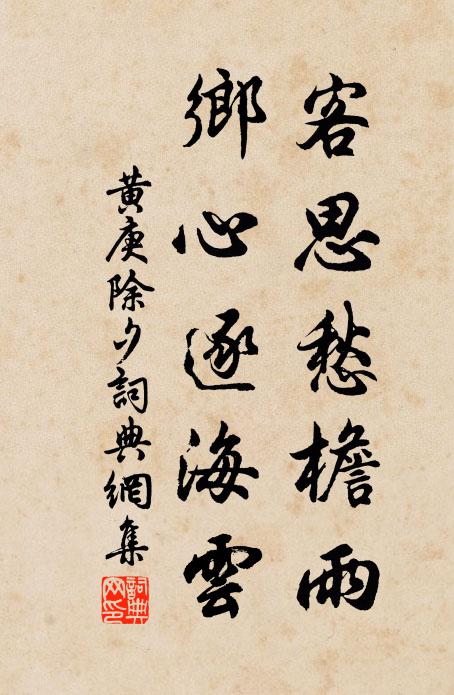 客思愁檐雨
鄉心逐海雲
黃庚除夕詞典網集
詞典網印